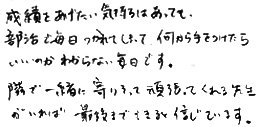 成績をあげたい気持ちはあっても、
部活で毎日つかれてしまって何から手をつけたら
いいのかわからない毎日です。
隣で一緒に寄りそって頑張ってくれる先生
がいれば最後までできると信じています。